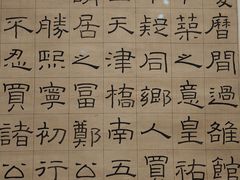 曆間過雒館
築之意皇祐
疑同鄉人買
天津橋南五
居之富鄭公
勝熙寧初行
不忍買諸公